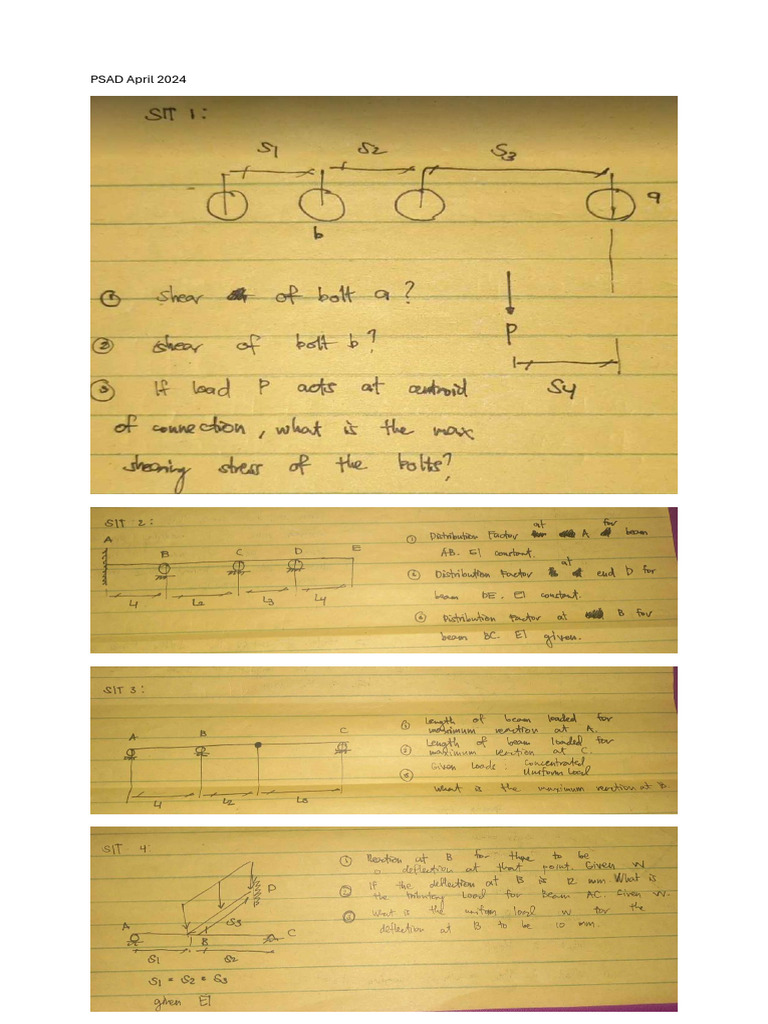 PSAD April 2024
SIT 1:
S1 S2 S3
a
b
① shear of bolt a?
P
② shear of bolt b?
S4
③ If load P acts at centroid
of connection, what is the max
shearing stress of the bolts?
SIT 2:
A B C D E
L1 L2 L3 L4
① Distribution Factor at A for beam
AB. EI constant.
② Distribution Factor at end D for
beam DE. EI constant.
③ Distribution Factor at B for
beam BC. EI given.
SIT 3:
A B C
L1 L2 L3
① Length of beam loaded for
maximum reaction at A.
② Length of beam loaded for
maximum reaction at C.
③ Given Loads: Concentrated
Uniform Load
What is the maximum reaction at B
SIT 4:
A B C D
S1 S2 S3
S1 = S2 = S3
given EI
① Reaction at B for there to be
0 deflection at that point. Given W
② If the deflection at B is 12 mm. What is
the tributary load for Beam AC. Given W.
③ What is the uniform load w for the
deflection at B to be 10 mm.